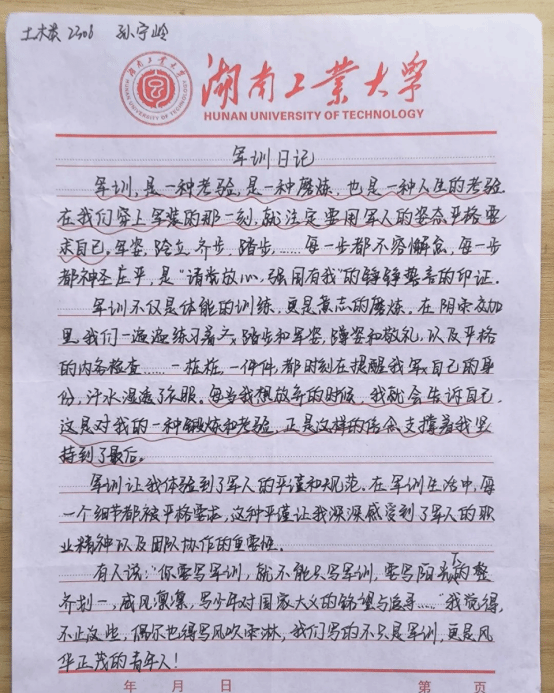 土木类2306 孙宁岭
湖南工业大学
HUNAN UNIVERSITY OF TECHNOLOGY
军训日记
军训,是一种考验,是一种磨炼,也是一种人生的考验
在我们穿上军装的那一刻,就注定要用军人的姿态严格要
求自己,军姿,跨立,齐步,踏步,……每一步都不容懈怠,每一步
都神圣庄严,是“请党放心,强国有我”的铮铮誓言的印证.
军训不仅是体能的训练,更是意志的磨炼。在阴雨交加
里,我们一遍遍练习着踏步和军姿,蹲姿和敬礼,以及严格
的内务检查……一桩桩,一件件,都时刻在提醒我军自己的身
份,汗水湿透了衣服。每当我想放弃的时候,我就会告诉自己,
这是对我的一种锻炼和考验,正是这样的信念支撑着我坚
持到了最后。
军训让我体验到了军人的严谨和规范,在军训生活中,每
一个细节都被严格要求,这种严谨让我深深感受到了军人的职
业精神以及团队协作的重要性.
有人说:“你要写军训,就不能只写军训,要写阳光下的整
齐划一,威风凛凛,写少年对国家大义的绮望与追寻……”我觉得,
不止这些,偶尔也得写风吹雨淋,我们写的不只是军训,更是风
华正茂的青年人!
年 月 日 第 页